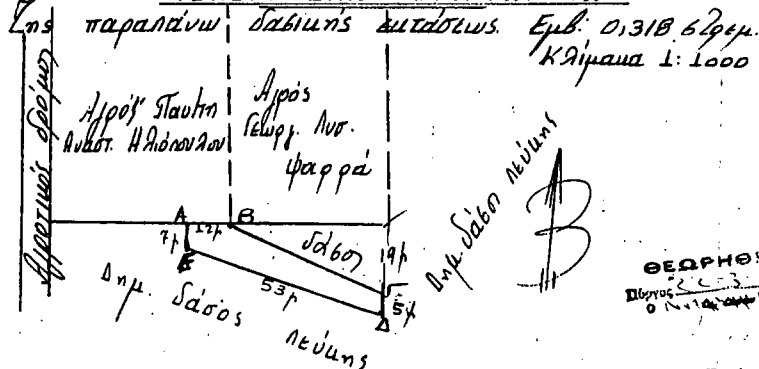 Της παραπάνω δασικής εκτάσεως. Εμβ: 0,318 στρεμ.
Κλίμακα 1:1000
Αγροτικός δρόμος
Αγρός Παύλη
Αναστ. Ηλιόπουλου
Αγρός
Γεωργ. Λυσ.
Ψαρρά
Α 12μ Β
7μ
Ε
δάσος
19μ
Γ
5μ
Δ
53μ
Δημ. δάσος Λεύκης
Δημ. δάσος Λεύκης
Β
ΘΕΩΡΗΘ
Πύργος
Ο